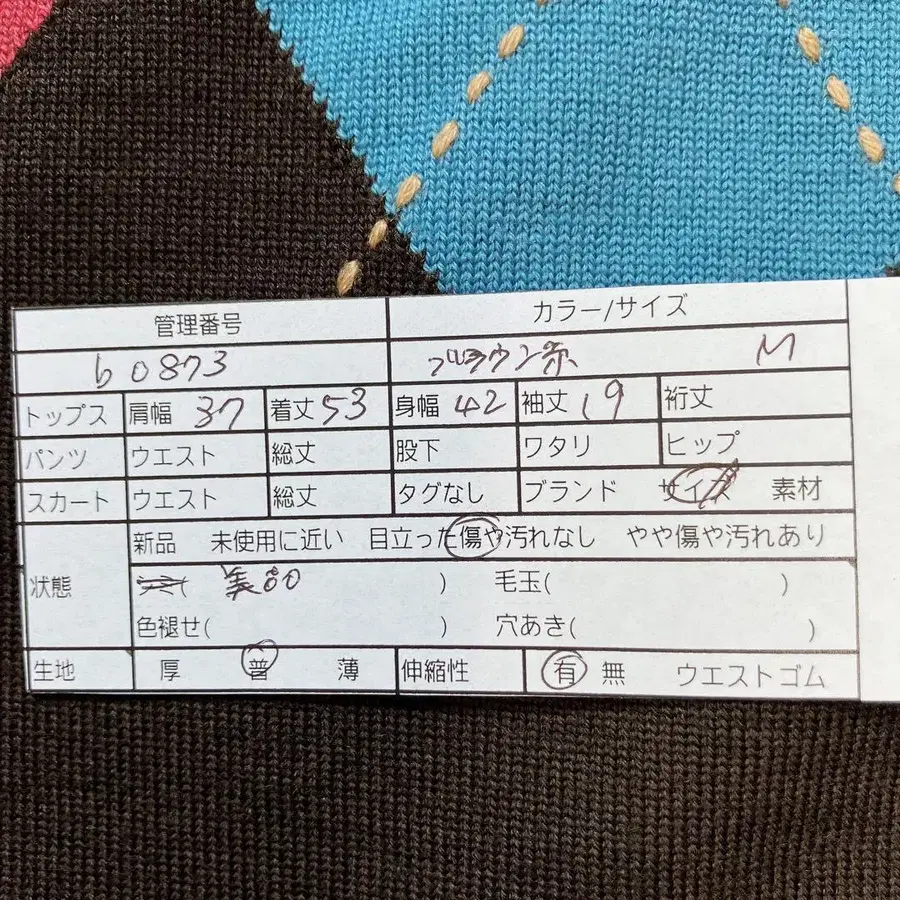 管理番号 カラー/サイズ
b0873 ブラウン系 M
トップス 肩幅 37 着丈 53 身幅 42 袖丈 19 裄丈
パンツ ウエスト 総丈 股下 ワタリ ヒップ
スカート ウエスト 総丈 タグなし ブランド サイズ 素材
新品 未使用に近い 目立った傷や汚れなし やや傷や汚れあり
状態 ( 美品 ) 毛玉( )
色褪せ( ) 穴あき( )
生地 厚 普 薄 伸縮性 有 無 ウエストゴム